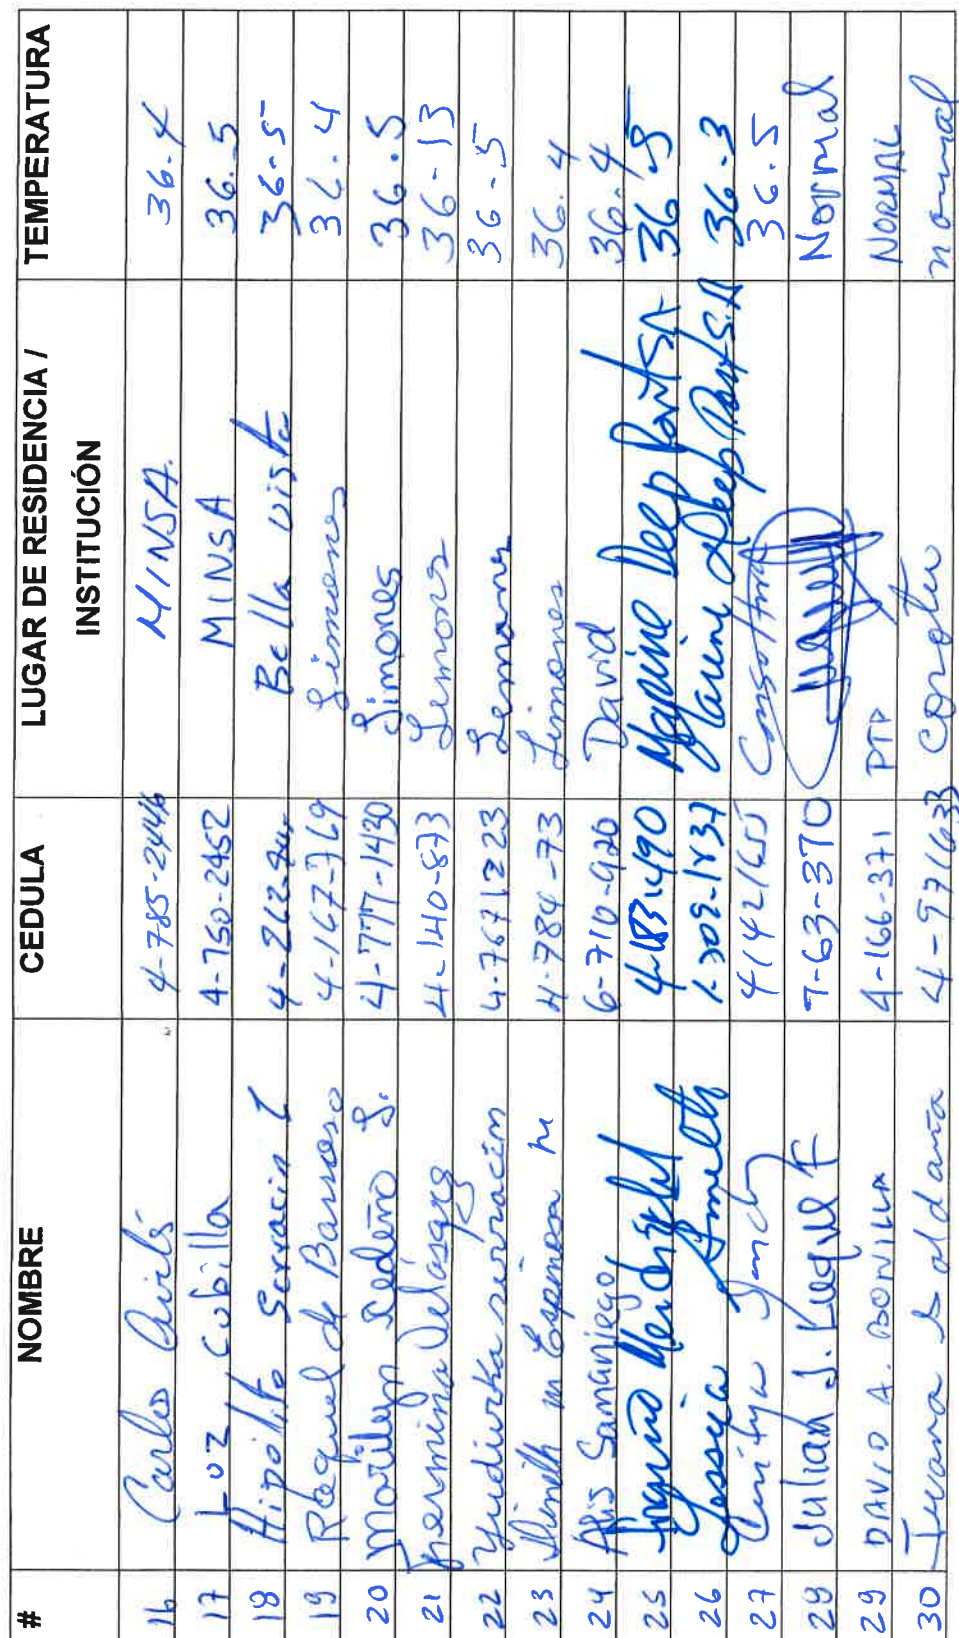 # NOMBRE CEDULA LUGAR DE RESIDENCIA / INSTITUCIÓN TEMPERATURA
16 Carlos Avilés 4-785-2446 MINSA. 36.4
17 Luz Cubilla 4-750-2452 MINSA 36.5
18 Hipolito Serracin 4-262- Bella vista 36-5
19 Raquel de Barroso 4-167-769 Limones 36.4
20 Marilyn Cedeño S. 4-777-1430 Limones 36.5
21 4-140-873 Limones 36-13
22 Yudiurka serracin 4-7671223 Limones 36-5
23 m Espinosa M 4-784-73 Limones 36.4
24 Alis Samaniego 6-710-920 David 36.4
25 4-183-490 Marine Deep Port SA 36.5
26 Yessica 1-709-1837 Marine Deep Port S.A 36.3
27 4142155 36.5
28 Julian J. Luque F 7-63-370 Normal
29 DAVID A. BONILLA 4-166-371 PTP NORMAL
30 Ivana Saldaña 4-971633 Corotu normal